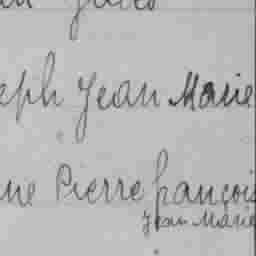 eph Jean Marie
ne Pierre françois
Jean Marie